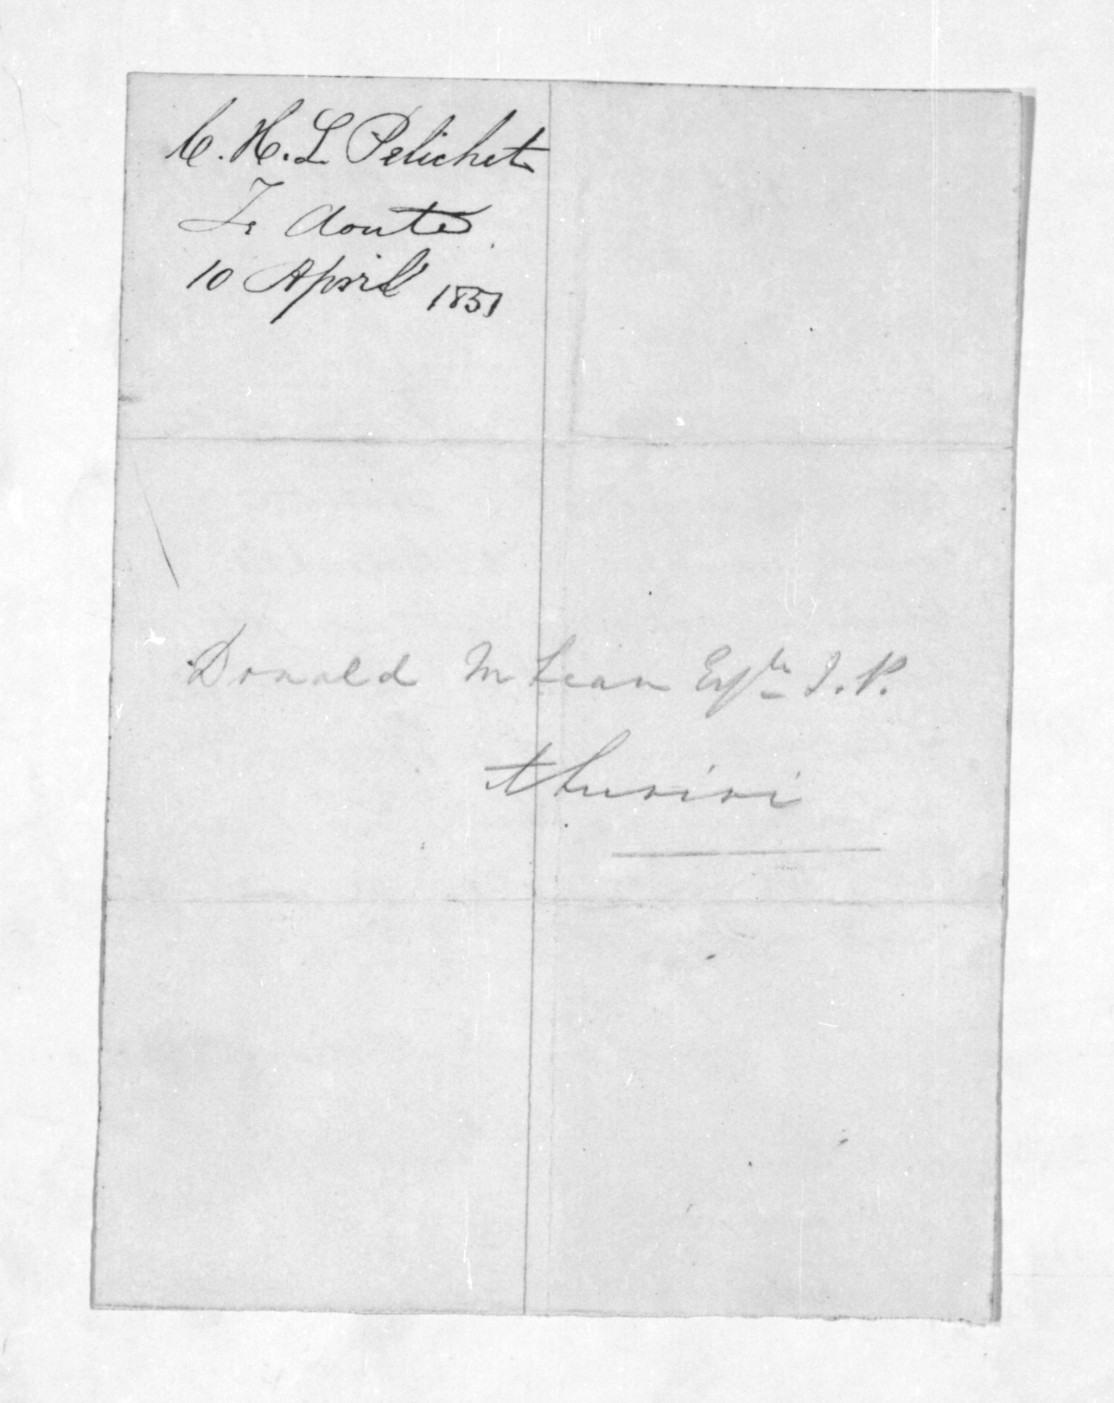 C. H. L Pelichet
Te Aoute
10 April 1851
Donald McLean Esqre J. P.
Ahuriri